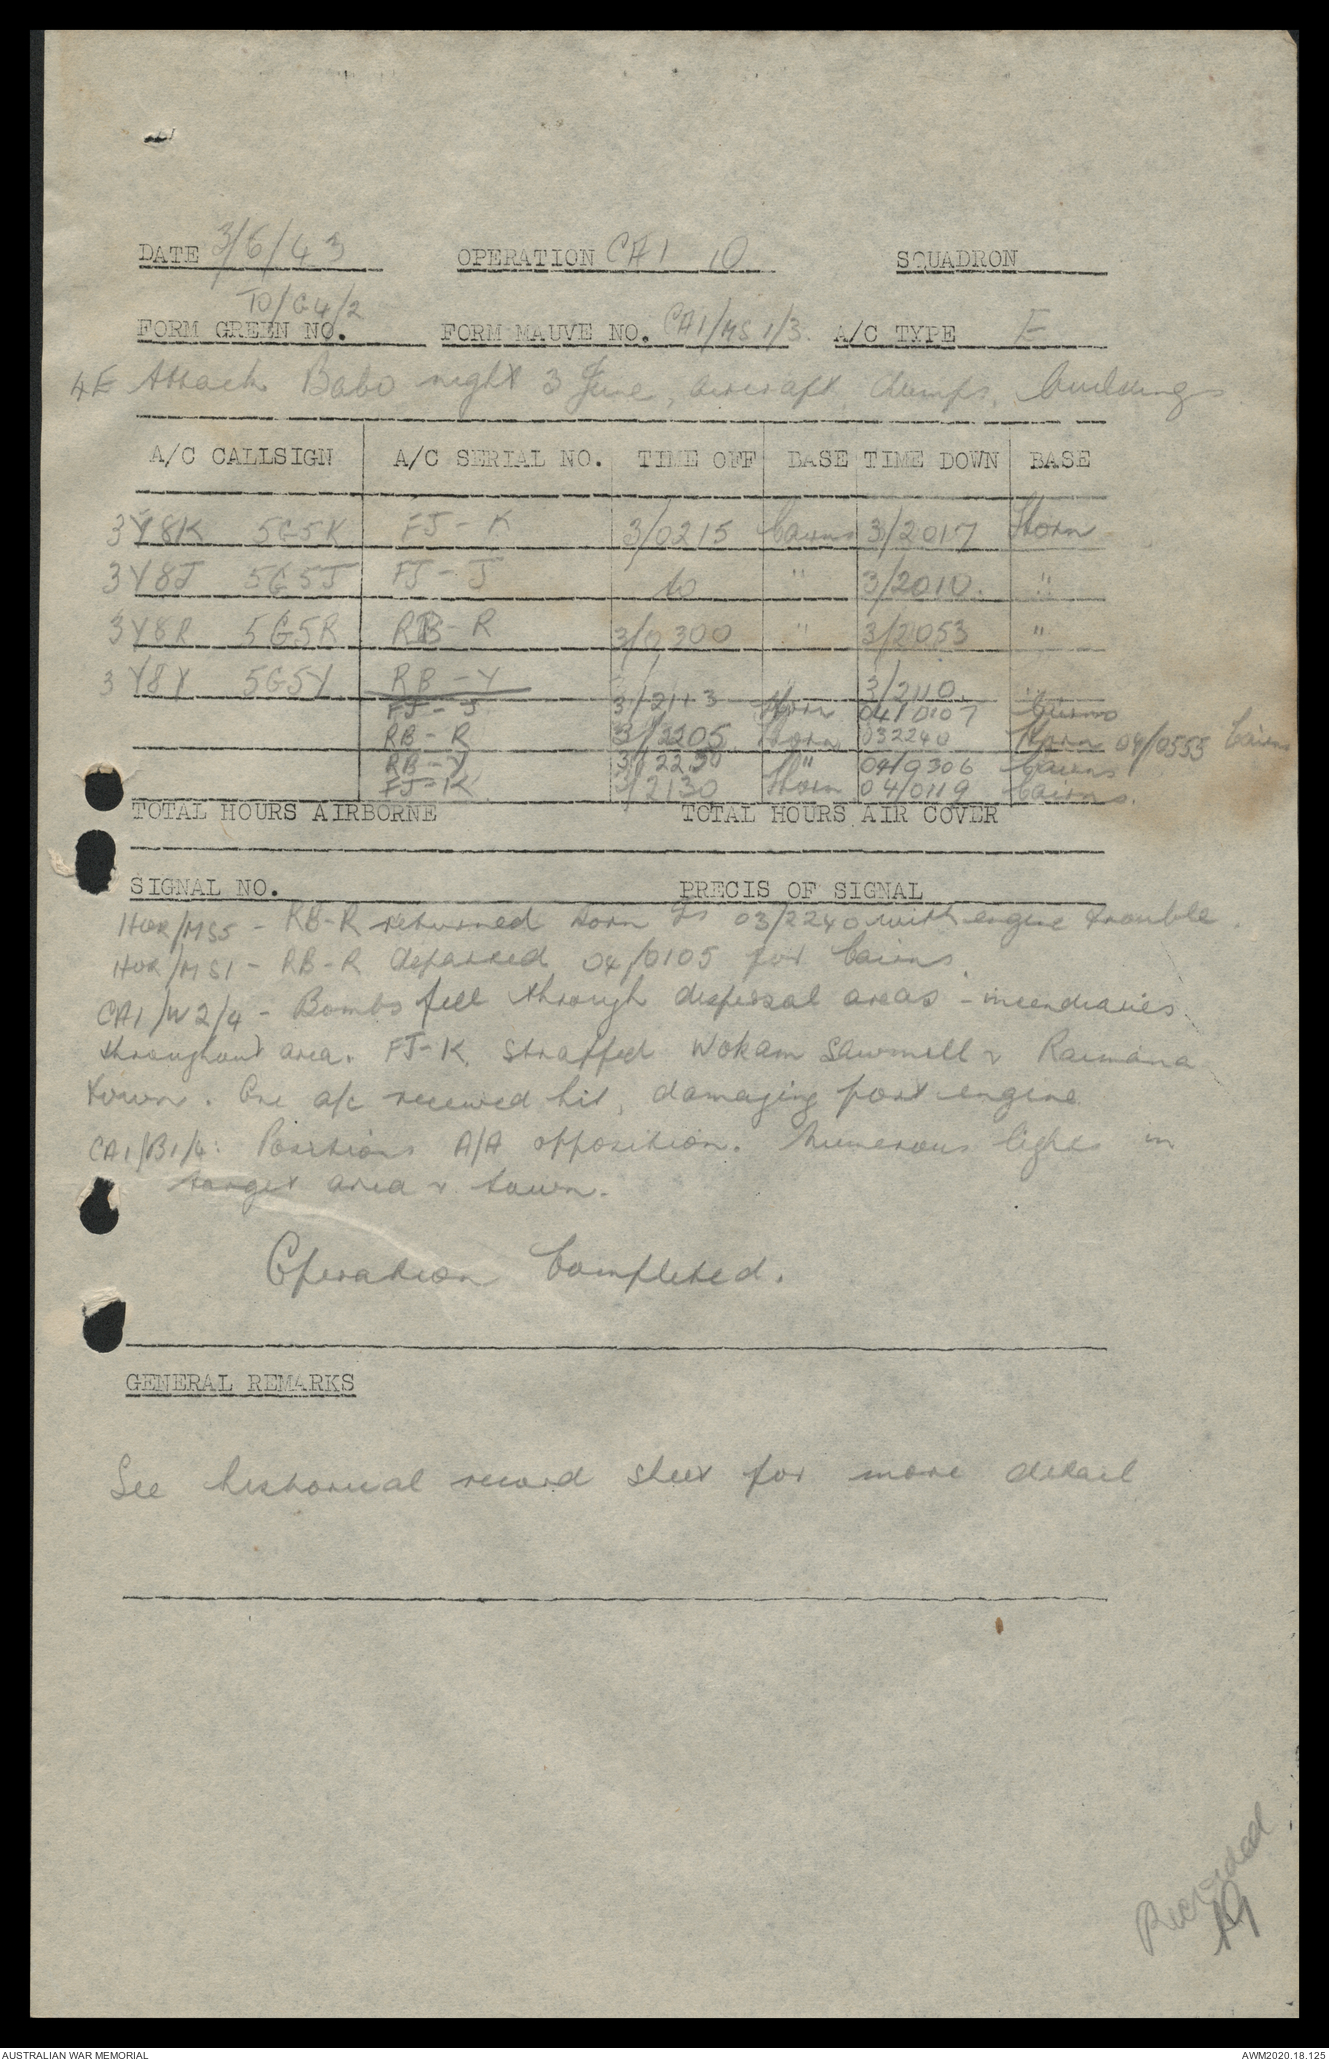 DATE 3/6/43 OPERATION CA1 10 SQUADRON
TO/G4/2
FORM GREEN NO. FORM MAUVE NO. CA1/MS 1/3. A/C TYPE E
4E Attack Babo night 3 June, aircraft, dumps, buildings
A/C CALLSIGN A/C SERIAL NO. TIME OFF BASE TIME DOWN BASE
3Y8K 5G5K FJ-K 3/0215 Cairns 3/2017 Horn
3Y8J 5G5J FJ-J to " 3/2010. "
3Y8R 5G5R RB-R 3/0300 " 3/2053 "
3Y8Y 5G5Y RB-Y 3/2110.
FJ-J 3/2113 Horn 04/0107 Cairns
RB-R 3/2205 Horn 032240 Horn 04/0555 Cairns
RB-Y 3/2230 " 04/0306 Cairns
FJ-K 3/2130 Horn 04/0119 Cairns.
TOTAL HOURS AIRBORNE TOTAL HOURS AIR COVER
SIGNAL NO. PRECIS OF SIGNAL
HOR/MS5 - RB-R returned Horn Is 03/2240 with engine trouble.
HOR/MS1 - RB-R departed 04/0105 for Cairns.
CA1/W2/4 - Bombs fell through dispersal areas - incendiaries
throughout area. FJ-K straffed Wokam Sawmill & Raimana
town. One a/c received hit, damaging port engine
CA1/B1/4: Positions A/A opposition. Numerous lights in
target area & town.
Operation Completed.
GENERAL REMARKS
See historical record sheet for more detail
Recorded
AUSTRALIAN WAR MEMORIAL AWM2020.18.125